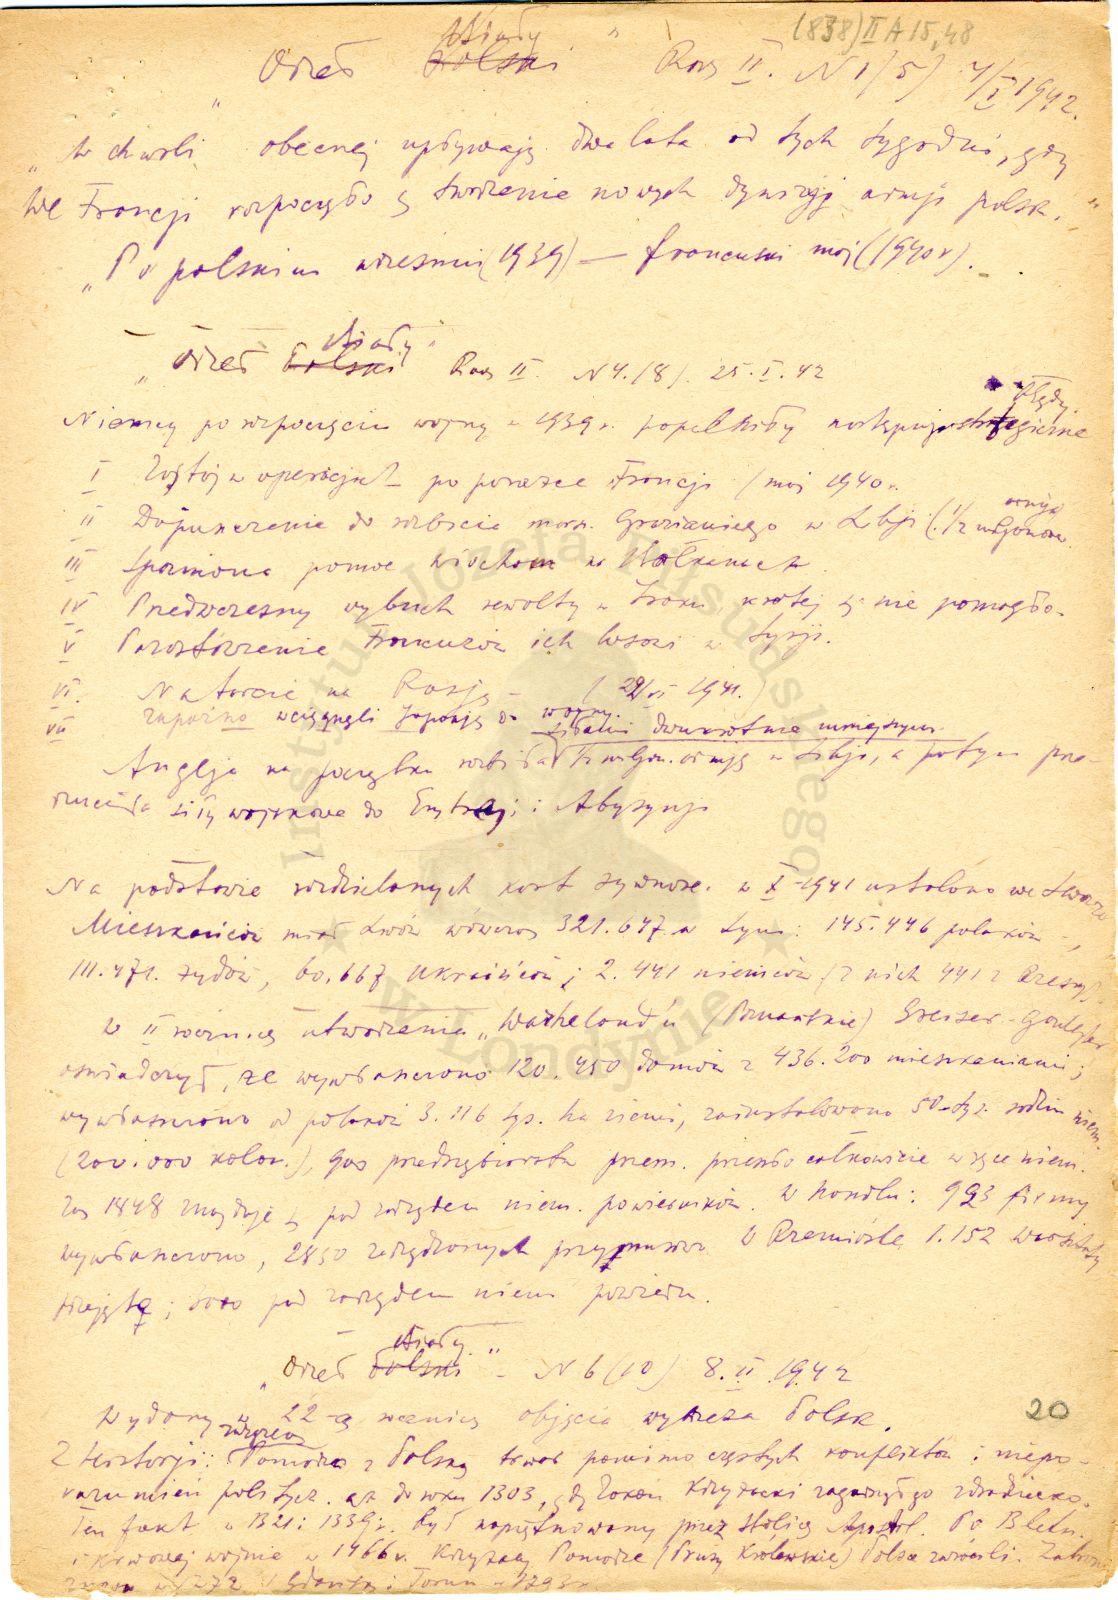 (838) II A 15, 48
Orzeł Biały " Rok II. N 1(5) 4/I 1942.
„W chwili obecnej upływają dwa lata od tych tygodni, gdy
we Francji rozpoczęło się tworzenie nowych dywizji armji polsk."
„Po polskim wrześniu (1939) — francuski maj (1940 r).
„Orzeł Polski Biały" Rok II. N 4.(8). 25.I.42
Niemcy po rozpoczęciu wojny w 1939 r. popełniły następuj. strategiczne błędy
I Zastój w operacjach po porażce Francji (maj 1940 r.
II Dopuszczenie do rozbicia marsz. Grazianiego w Libji (1/2 miljonowa armja
III Spóźniona pomoc Włochom na Bałkanach
IV Przedwczesny wybuch rewolty w Iraku, której się nie pomogło.
V Pozostawienie Francuzów ich losowi w Syrji.
VI. Natarcie na Rosję – (22/VI 1941.)
VII zapóźno wciągnęli Japonję do wojny.
siłami dwukrotnie mniejszymi
Anglja na początku rozbiła 1/2 miljon. armję w Libji, a potym prze-
rzuciła siły wojskowe do Erytreji i Abysynji
Na podstawie rozdzielonych kart żywnośc. w X 1941 ustalono we Lwowie
Mieszkańców miał Lwów wówczas 321.647 w tym: 145.446 polaków,
111.471. żydów, 60.667 Ukraińców; 2.441 niemców (z nich 441 z Rzeszy).
w II rocznicę utworzenia „Warthelandu (Poznańskie) Greiser - Gauleiter
oświadczył, że wywłaszczono 120.450 domów z 436.200 mieszkaniami;
wywłaszczono od polaków 3.116 tys. ha ziemi, zainstalowano 50-tys. rodzin niem.
(200.000 kolon.), 900 przedsiębiorstw przem. przeszło całkowicie w ręce niem.
zaś 1848 znajduje się pod zarządem niem. powierników. W handlu: 993 firmy
wywłaszczono, 2850 zarządzonych przymusow. W Rzemiośle 1.152 warsztaty
zajęte; pod zarządem niem powiern.
„Orzeł Polski Biały" - N 6(10) 8.II.1942
Wydany w 22-ą rocznicę objęcia wybrzeża Polsk.
20
Z historji: związek Pomorza z Polską trwał pomimo częstych konfliktów i niepo-
rozumień politycz. aż do roku 1303, gdy Zakon Krzyżacki zagarnął go zdradziecko.
Ten fakt w 1321 i 1339 r. był napiętnowany przez Stolicę Apostol. Po 13 letn.
i krwawej wojnie w 1466 r. Krzyżacy Pomorze (Prusy Królewskie) Polsce zwrócili.
Gdańsk i Toruń w 1793 r
Instytut Józefa Piłsudskiego ★ w Londynie ★